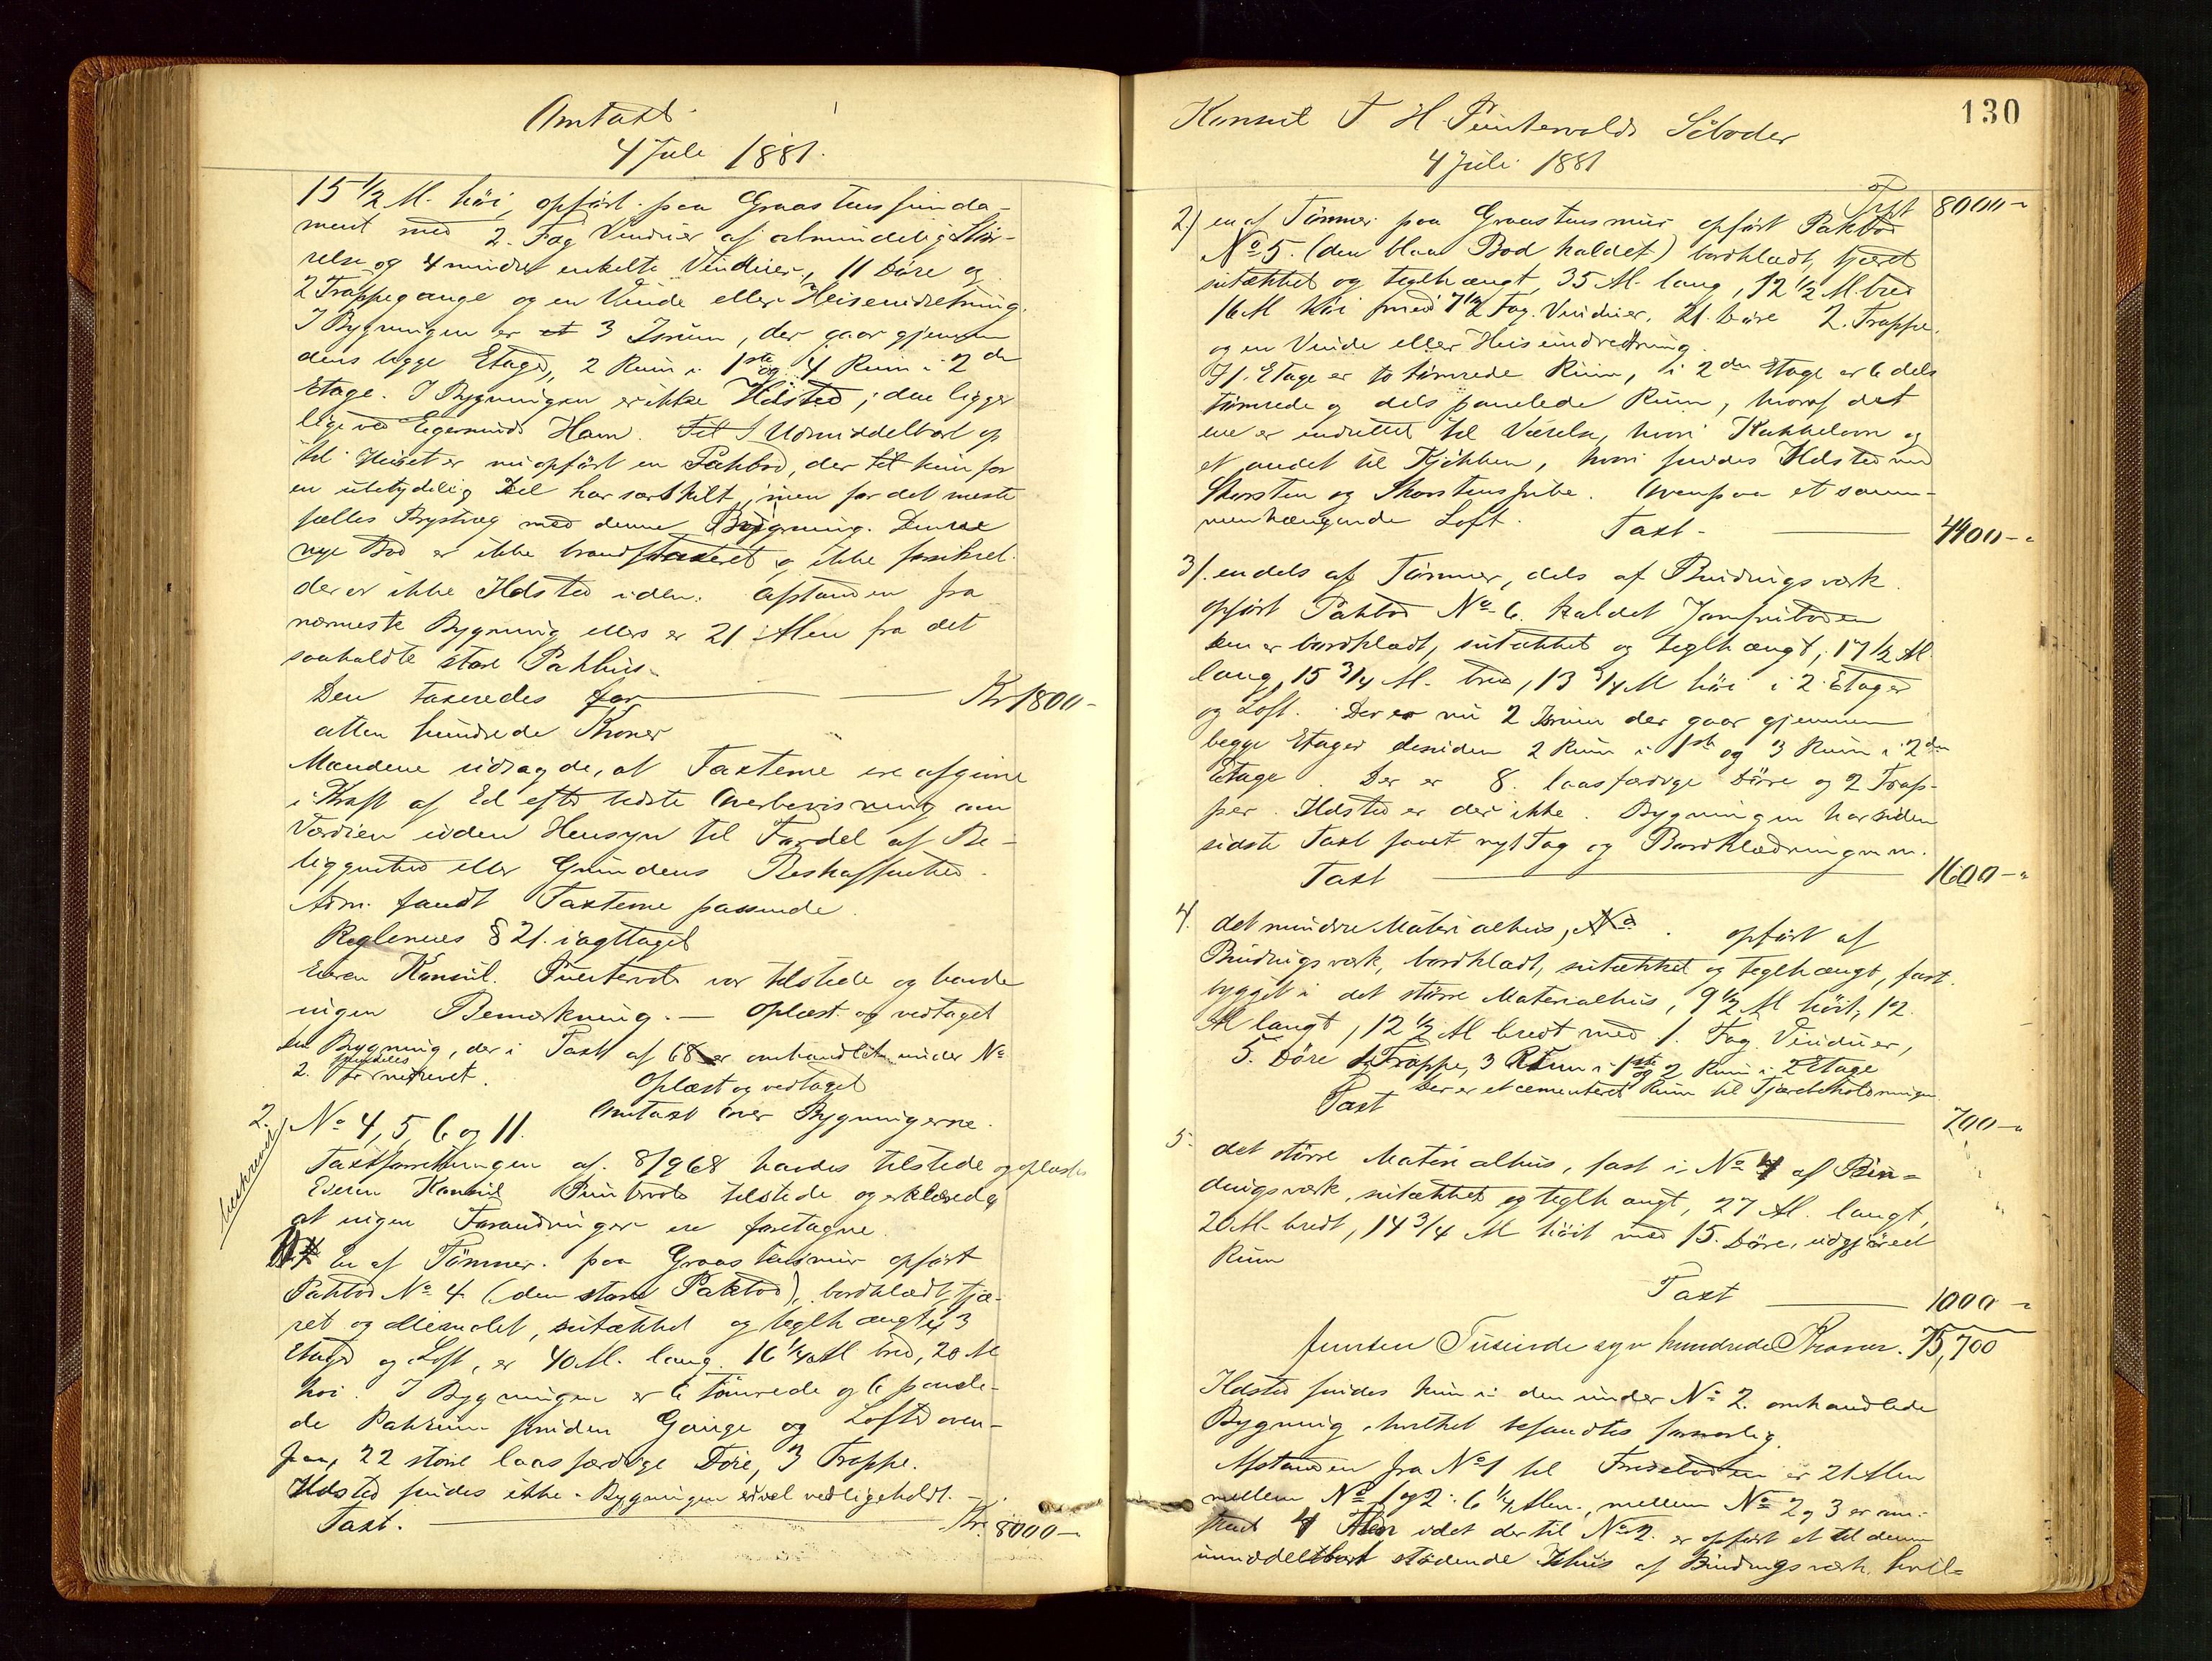 Omtaxt
4 Juli 1881.
15 1/2 Al. höi, opført paa Graastensfunda-
ment med 2 Fag Vinduer af almindelig Stör-
relse og 4 mindre enkelte Vinduer, 11 Döre og
2 Trappegange og en Vinde eller Heiseindretning.
I Bygningen er et 3 Isrum, der gaar gjennem
dens begge Etager, 2 Rum i 1ste og 4 Rum i 2den
Etage. I Bygningen er ikke Ildsted; den ligger
lige ved Egersunds Havn. Til Umiddelbart op
til Huset er nu opført en Pakbod, der til kun for
en ubetydelig Del har særskilt, men for det meste
fælles Brystvæg med denne Bygning. Denne
nye Bod er ikke brandtaxeret og ikke forsikret.
der er ikke Ildsted inden. Afstanden fra
nærmeste Bygning ellers er 21 Alen fra det
saakaldte store Pakhus.
Den taxeredes for Kr 1800-
atten hundrede Kroner
Mændene udsagde, at Taxterne ere afgivne
i Kraft af Ed efter bedste Overbevisning om
Værdien uden Hensyn til Fordel af Be-
liggenhed eller Grundens Beskaffenhed.
Adm. fandt Taxterne passende.
Reglernes § 21. iagttaget
Eieren Konsul Puntervold var tilstede og havde
ingen Bemærkning. — Oplæst og vedtaget
den Bygning, der i Taxt af 68 er omhandlet under No
2. fandtes nedrevet. Oplæst og vedtaget
2. No 4, 5, 6 og 11. Omtaxt over Bygningerne.
beskrevet
Taxtforretningen af 8/9 68 havdes tilstede og oplæstes
Eieren Konsul Puntervold tilstede og erklærede
at ingen Forandringer ere foretagne.
1) En af Tömmer paa Graastensmur opført
Pakbod No 4 (den store Pakbod), bordklædt, tjæ-
ret og oliemalet, sutækket og teglhængt i 3
Etager og Loft, er 40 Al. lang, 16 1/4 Al bred, 20 Al
höi. I Bygningen er 6 tömrede og 6 panele-
de Pakrum foruden Gange og Loftet oven-
paa, 22 större laasfærdige Döre, 3 Trapper.
Ildsted findes ikke. Bygningen er vel vedligeholdt.
Taxt. Kr. 8000-
Konsul T H Puntervolds Söboder
130
4 Juli 1881
Trsft 8000-
2) en af Tömmer paa Graastensmur opført Pakbod
No 5. (den blaa Bod kaldet) bordklædt, tjæret
sutækket og teglhængt, 35 Al. lang, 12 1/2 Al. bred
16 Al höi med 7 1/2 Fag Vinduer. 21 Döre 2. Trapper.
og en Vinde eller Heiseindretning.
I 1. Etage er to tömrede Rum, i 2den Etage er 6 dels
tömrede og dels panelede Rum, hvoraf det
ene er indrettet til Værelse, hvori Kakkelovn og
et andet til Kjökken, hvori findes Ildsted med
Skorsten og Skorstenspibe. Ovenpaa et sam-
menhængende Loft. Taxt - 4400-
3). en dels af Tömmer, dels af Bindingsværk
opført Pakbod No 6. kaldet Jomfruboden
den er bordklædt, sutækket og teglhængt, 17 1/2 Al
lang, 15 3/4 Al. bred, 13 3/4 Al höi i 2 Etager
og Loft. Der er nu 2 Isrum der gaar gjennem
begge Etager desuden 2 Rum i 1ste og 3 Rum i 2den
Etage. Der er 8 laasfærdige Döre og 2 Trap-
per. Ildsted er der ikke. Bygningen har siden
sidste Taxt faaet nyt Tag og Bordklædning m. m.
Taxt 1600-
4. det mindre Materialhus, No . opført af
Bindingsværk, bordklædt, sutækket og teglhængt, fast
bygget i det större Materialhus, 9 1/2 Al höit, 12
Al langt, 12 1/2 Al bredt med 1. Fag Vinduer,
5. Döre 1 Trappe, 3 Rum i 1ste og 2 Rum i 2 Etage
Der er et cementeret Rum til Tjærebeholdningen
Taxt 700-
5. det större Materialhus, fast i No 4 af Bin-
dingsværk, sutækket og teglhængt, 27 Al. langt,
20 Al. bredt, 14 3/4 Al höit med 15. Döre, udgjör eet
Rum
Taxt 1000-
femten Tusinde syv hundrede Kroner. 15,700
Ildsted findes kun i den under No 2. omhandlede
Bygning, hvilket befandtes forsvarlig.
Afstanden fra No 1 til Fredeboden er 21 Alen
mellem No 1 og 2: 6 1/4 Alen., mellem No 2 og 3 er om-
trent 4 Alen idet der til No 2. er opført et til denne
umiddelbart stödende Ishus af Bindingsværk, hvil-